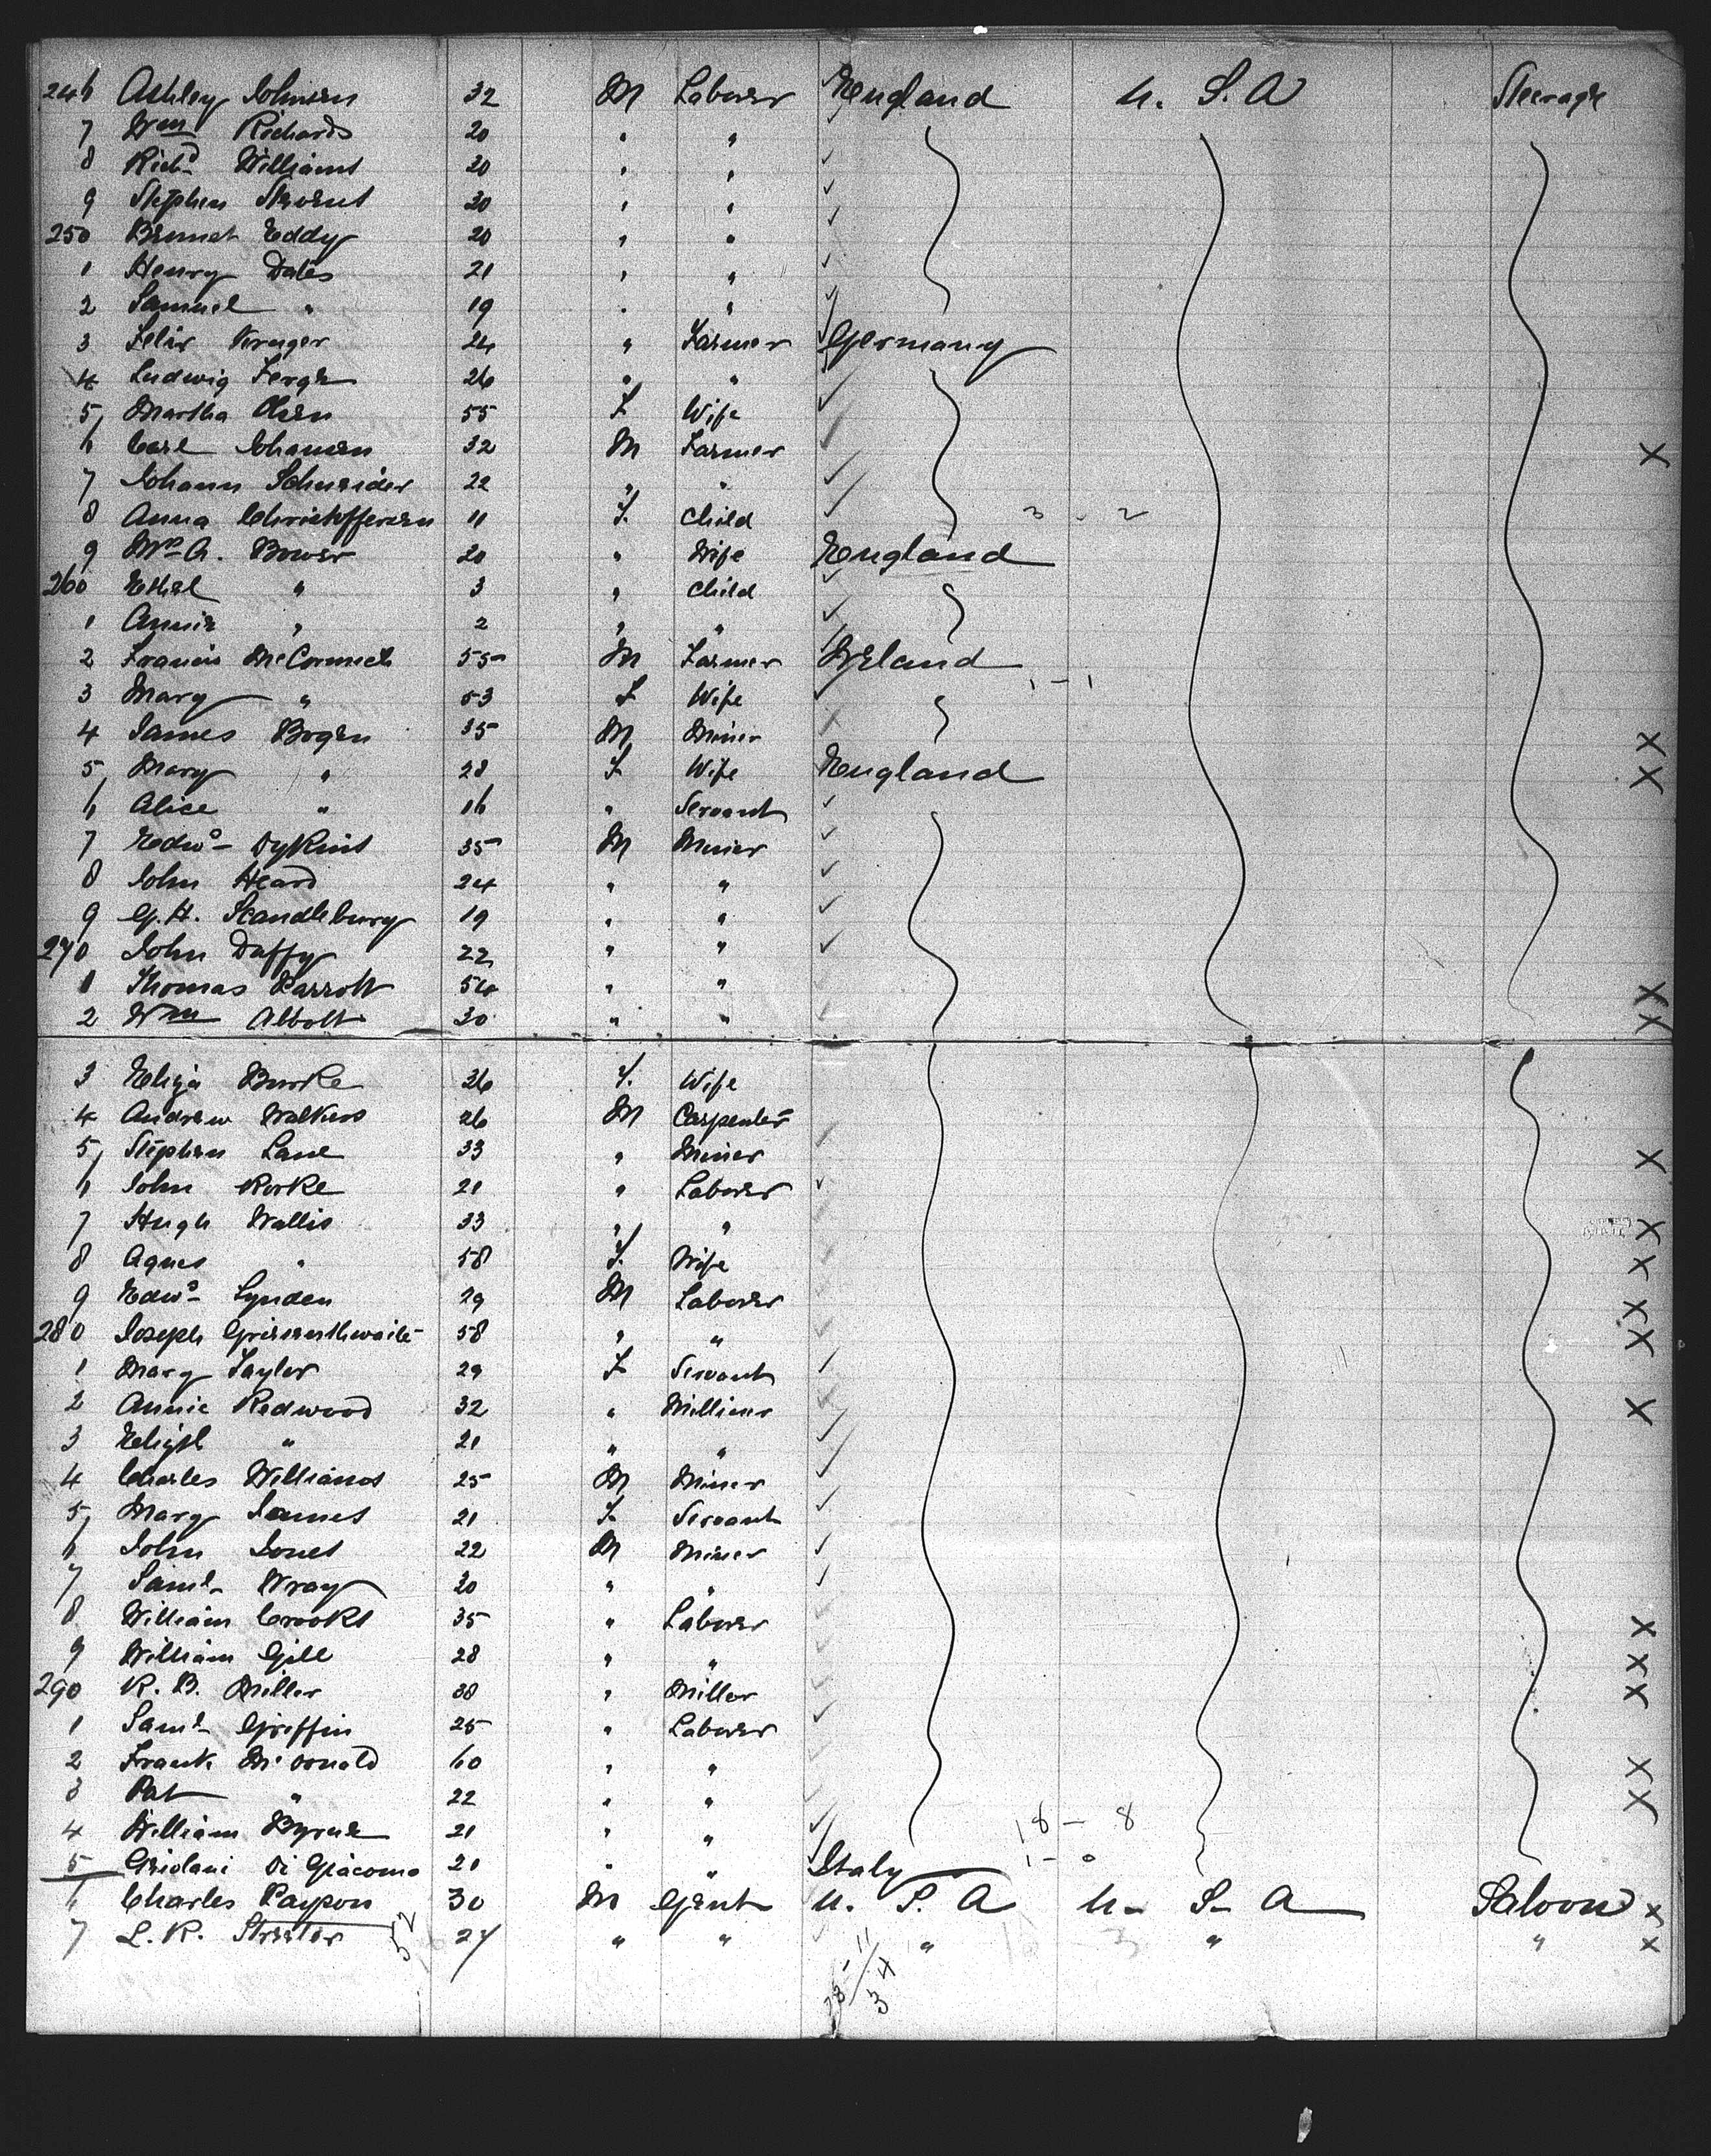 246 Ashley Johnson 32 M Laborer England U. S. A Steerage
7 Wm Richards 20 " "
8 Richd Williams 20 " "
9 Stephen 20 " "
250 Eddy 20 " "
1 Henry Dates 21 " "
2 Samuel " 19 " "
3 Felix Kruger 24 " Farmer Germany
4 Ludwig 26 " "
5 Martha Olsen 55 F Wife
6 Carl Johansen 32 M Farmer X
7 Johann Schneider 22 " "
8 Anna Christoffersen 11 F. Child 3 - 2
9 Mrs A. Bower 20 " Wife England
260 Ethel " 3 " Child
1 Annie " 2 " "
2 Francis McCormick 55 M Farmer Ireland
3 Mary " 53 F Wife 1 - 1
4 James Bogen 35 M Miner XX
5 Mary " 28 F Wife England XX
6 Alice " 16 " Servant
7 Edwd Dykins 35 M Miner
8 John Heard 24 " "
9 G. H. Scandlebury 19 " "
270 John Daffy 22 " "
1 Thomas Parrott 54 " " XX
2 Wm Abbott 30 " " XX
3 Eliza Burke 36 F. Wife
4 Andrew Walkers 26 M Carpenter
5 Stephen Lane 33 " Miner X
6 John Rorke 21 " Laborer
7 Hugh Wallis 33 " " XX
8 Agnes " 58 F. Wife XX
9 Edwd Lynden 29 M Laborer XX
280 Joseph Grisenthwaite 58 " " XX
1 Mary Taylor 29 F Servant
2 Annie Redwood 32 " Milliner X
3 " 21 " "
4 Charles Williams 25 M Miner
5 Mary James 21 F Servant
6 John Jones 22 M Miner
7 Saml Wray 20 " "
8 William Crooks 35 " Laborer XX
9 William Gill 28 " " XX
290 R. B. Miller 38 " Miller XX
1 Saml Griffin 25 " Laborer
2 Frank McDonald 60 " " XX
3 Pat " 22 " " XX
4 William Byrne 21 " " 18 - 8
5 Di Giacomo 20 " " Italy 1 - 0
6 Charles Paypon 30 M Gent U. S. A U. S. A Saloon X
7 L. R. Streeter 27 " " " " " X
52
28 - 11
34